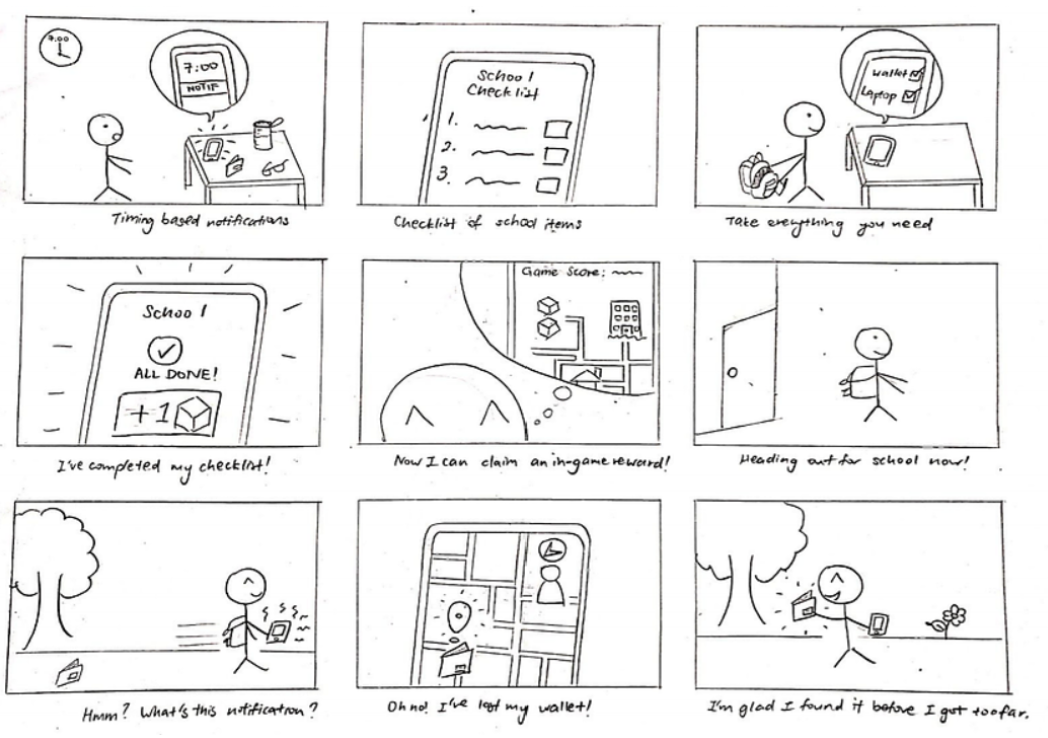 7:00
7:00
NOTIF
Timing based notifications
School
Checklist
1.
2.
3.
Checklist of school items
wallet
Laptop
Take everything you need
School
ALL DONE!
+1
I've completed my checklist!
Game Score:
Now I can claim an in-game reward!
Heading out for school now!
Hmm? What's this notification?
Oh no! I've lost my wallet!
I'm glad I found it before I got too far.